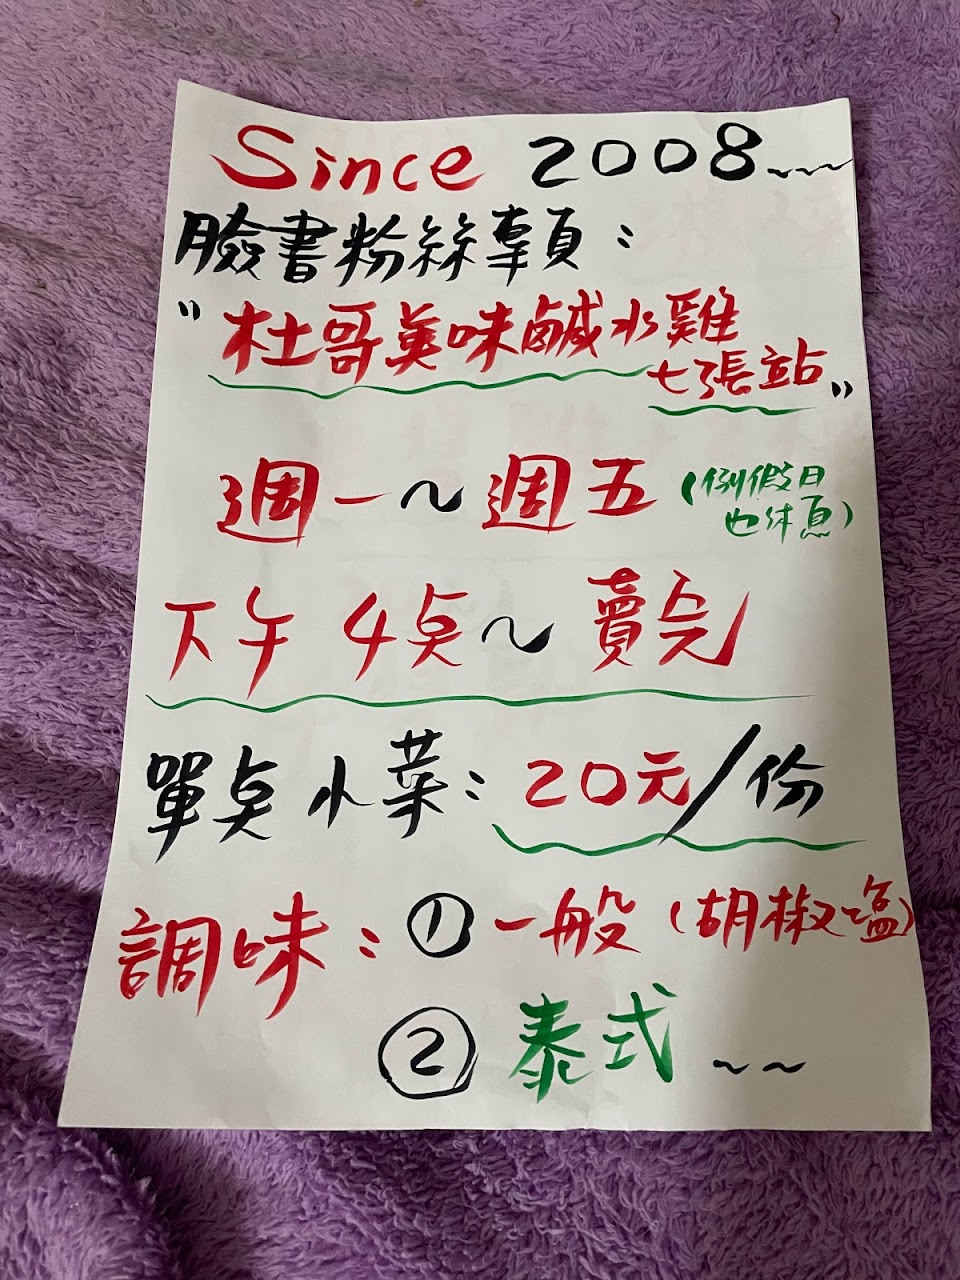 Since 2008~~~
臉書粉絲專頁:
"杜哥美味鹹水雞
七張站"
週一~週五(例假日
也休息)
下午4点~賣完
單点小菜:20元/份
調味:①一般(胡椒塩)
②泰式~~